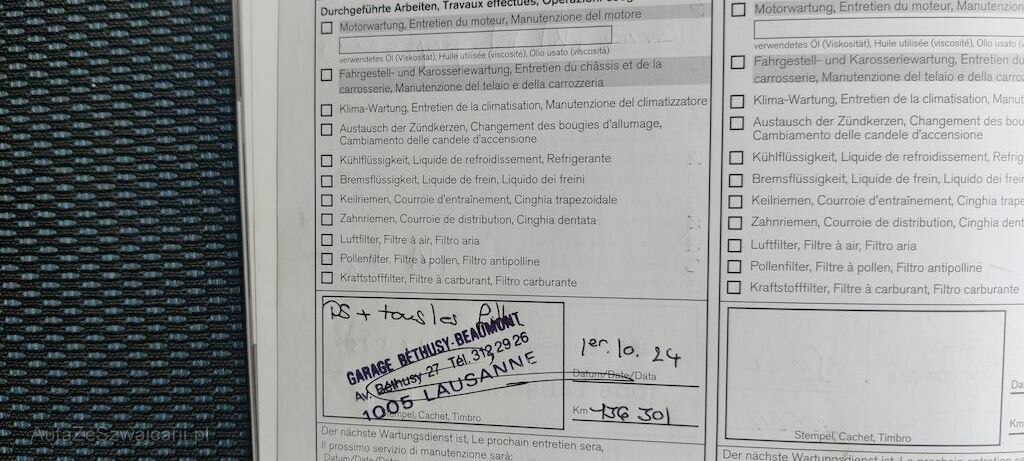 Durchgeführte Arbeiten, Travaux effectués,
Motorwartung, Entretien du moteur, Manutenzione del motore
verwendetes Öl (Viskosität), Huile utilisée (viscosité), Olio usato (viscosità)
Fahrgestell- und Karosseriewartung, Entretien du châssis et de la
carrosserie, Manutenzione del telaio e della carrozzeria
Klima-Wartung, Entretien de la climatisation, Manutenzione del climatizzatore
Austausch der Zündkerzen, Changement des bougies d'allumage,
Cambiamento delle candele d'accensione
Kühlflüssigkeit, Liquide de refroidissement, Refrigerante
Bremsflüssigkeit, Liquide de frein, Liquido dei freini
Keilriemen, Courroie d'entraînement, Cinghia trapezoidale
Zahnriemen, Courroie de distribution, Cinghia dentata
Luftfilter, Filtre à air, Filtro aria
Pollenfilter, Filtre à pollen, Filtro antipolline
Kraftstofffilter, Filtre à carburant, Filtro carburante
+ tous les
GARAGE BÉTHUSY-BEAUMONT
Av. Béthusy 27 Tél. 312 29 26
1005 LAUSANNE
Stempel, Cachet, Timbro
1er. 10. 24
Datum/Date/Data
Km 136 301
Der nächste Wartungsdienst ist, Le prochain entretien sera,
Il prossimo servizio di manutenzione sarà:
Datum/Date/Data
Motorwartung, Entretien du moteur,
verwendetes Öl (Viskosität), Huile utilisée (viscosité), Olio usato (viscosità)
Fahrgestell- und Karosseriewartung, Entretien
carrosserie, Manutenzione del telaio e della
Klima-Wartung, Entretien de la climatisation,
Austausch der Zündkerzen, Changement des
Cambiamento delle candele d'accensione
Kühlflüssigkeit, Liquide de refroidissement,
Bremsflüssigkeit, Liquide de frein, Liquido dei
Keilriemen, Courroie d'entraînement, Cinghia
Zahnriemen, Courroie de distribution, Cinghia
Luftfilter, Filtre à air, Filtro aria
Pollenfilter, Filtre à pollen, Filtro antipolline
Kraftstofffilter, Filtre à carburant, Filtro carburante
Stempel, Cachet, Timbro
Km
Der nächste Wartungsdienst ist, Le prochain entretien
Il prossimo servizio di manutenzione sarà:
AutaZeSzwajcarii.pl